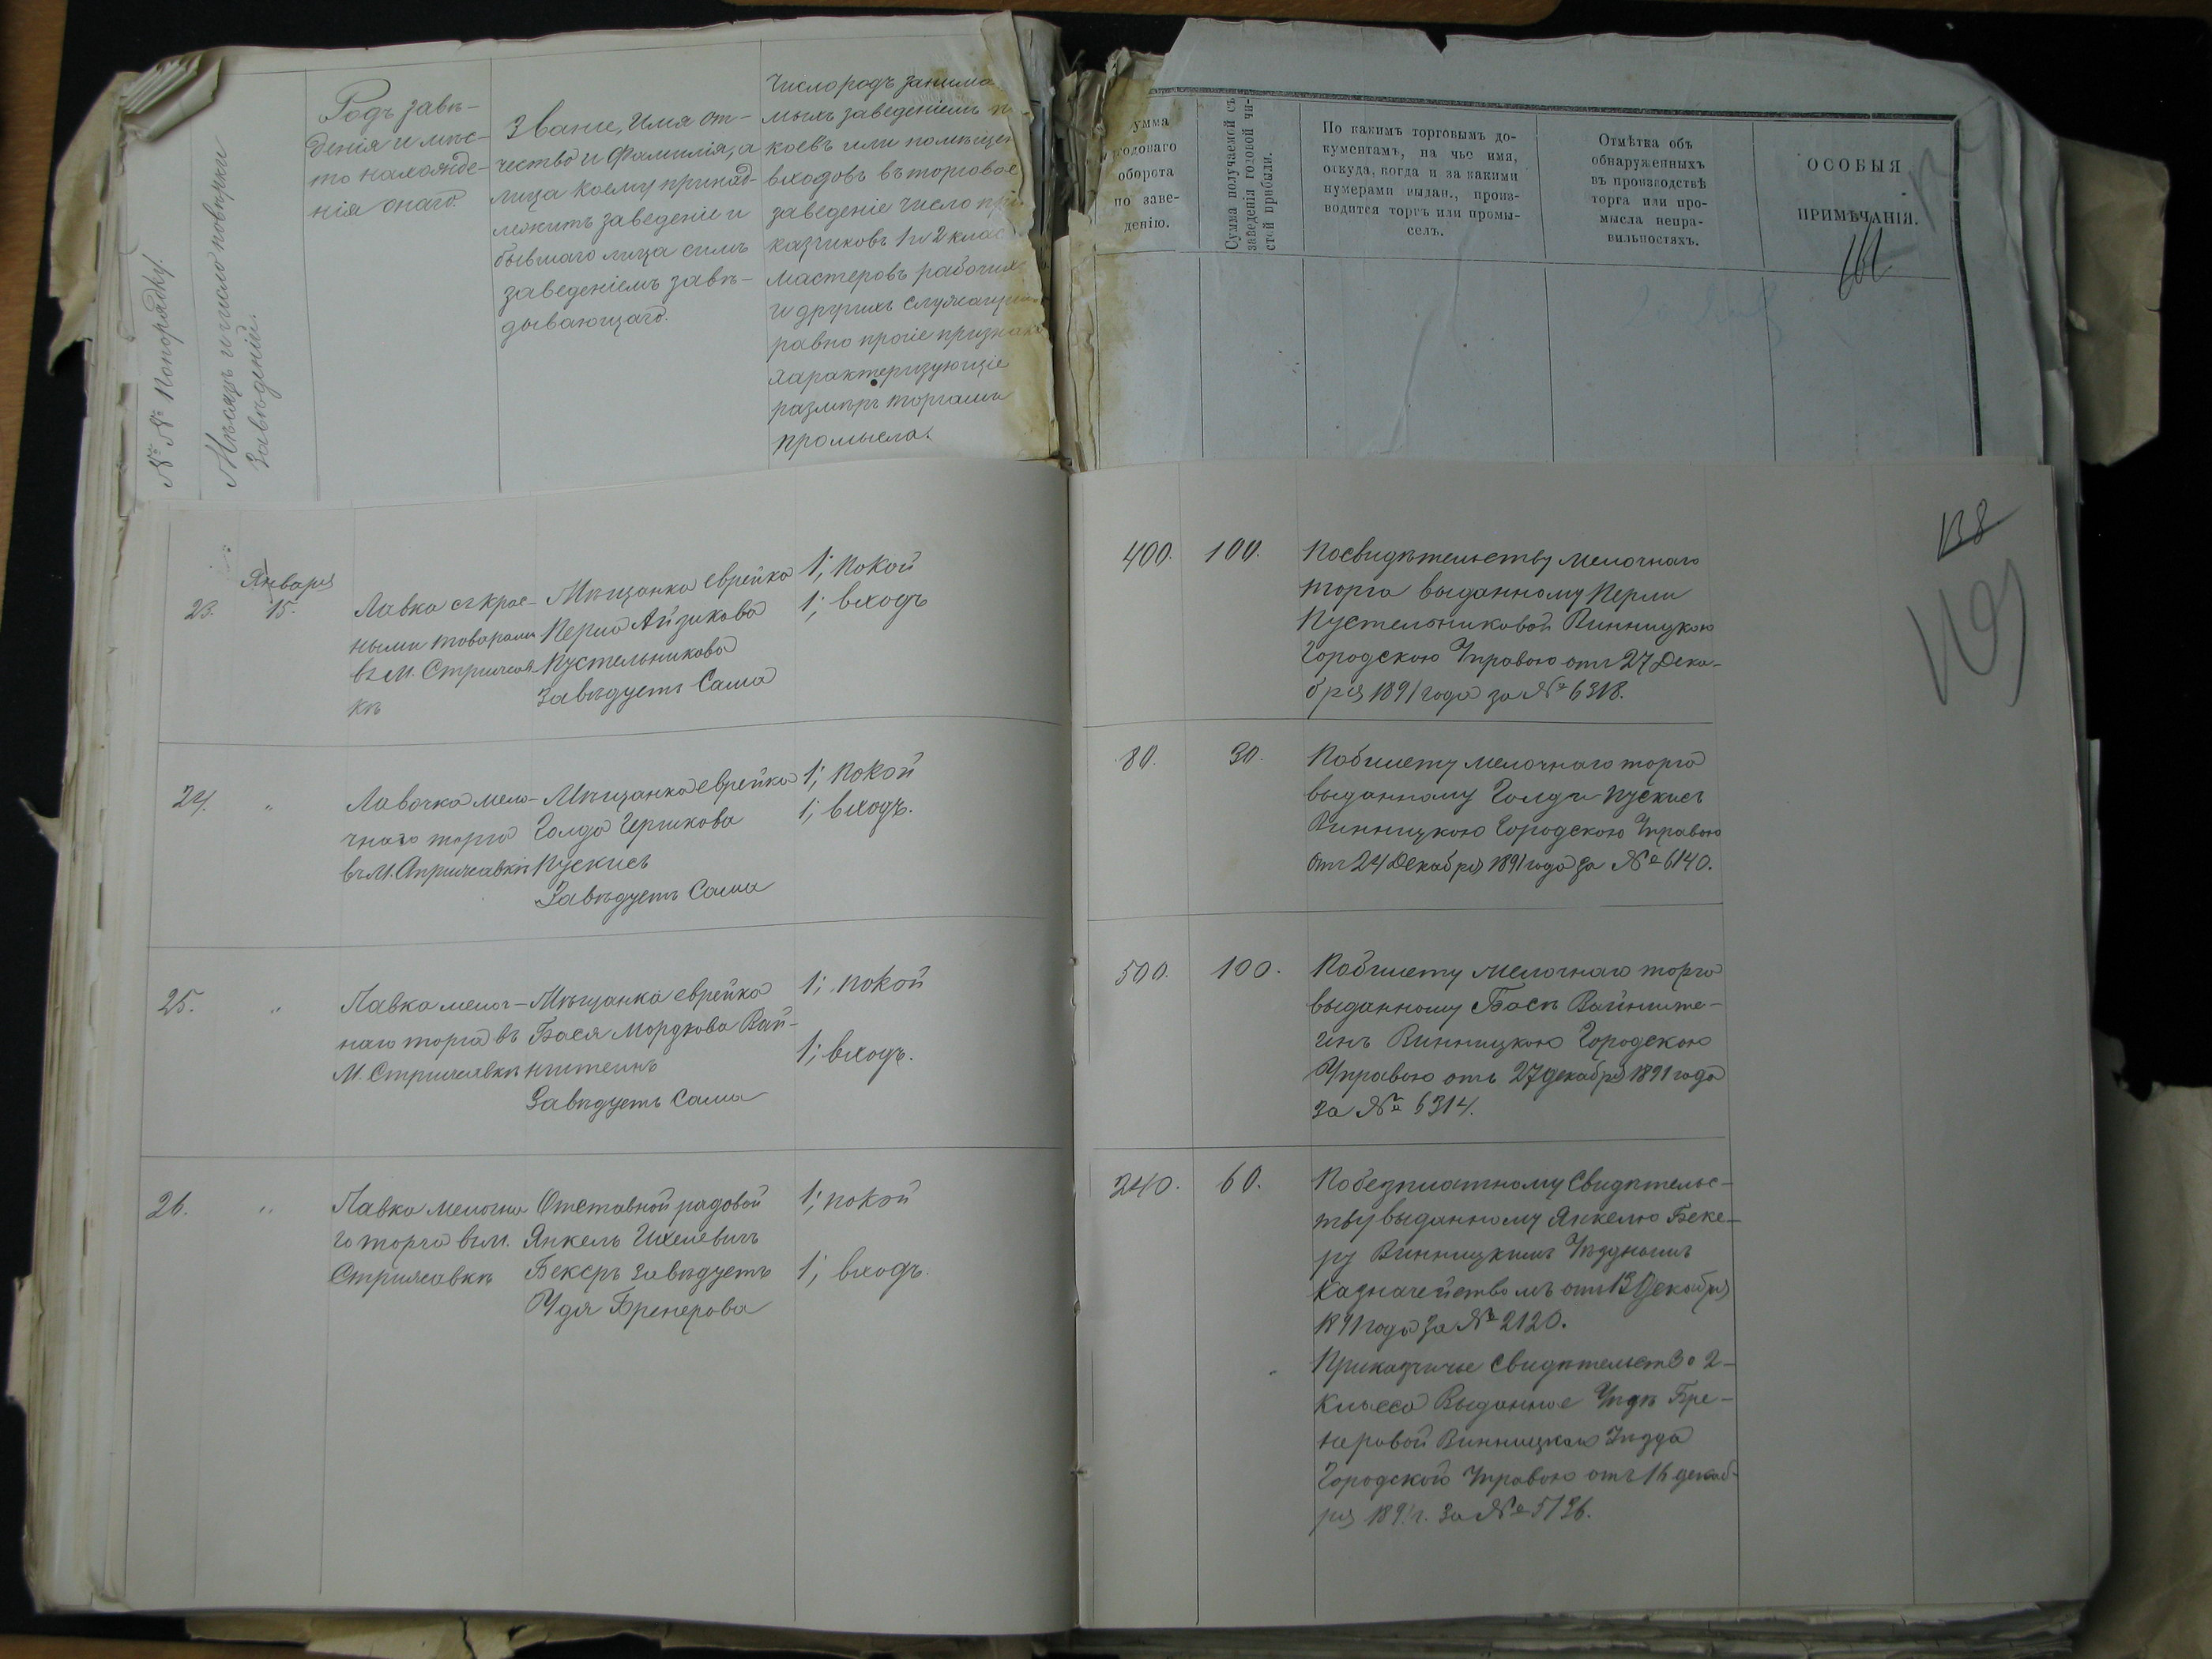 №№ Попорядку.
Мѣсяцъ и число повѣрки
Заведеній.
Родъ завѣ-
денія и мѣс-
то нахожде-
нія онаго.
Званіе, Имя от-
чество и Фамилія, а
лица коему принад-
лежитъ заведеніе и
бывшаго лица симъ
заведеніемъ завѣ-
дывающаго.
Число родъ занима
мыхъ заведеніемъ п
коевъ или помѣщен
входовъ въ торговое
заведеніе число при
казчиковъ 1 и 2 клас
мастеровъ рабочих
и другихъ служащих
равно прочіе признак
характеризующіе
размѣръ торга или
промысла.
умма
годоваго
оборота
по заве-
денію.
Сумма получаемой съ
заведенія годовой чи-
стой прибыли.
По какимъ торговымъ до-
кументамъ, на чье имя,
откуда, когда и за какими
нумерами выдан., произ-
водится торгъ или промы-
селъ.
Отмѣтка объ
обнаруженныхъ
въ производствѣ
торга или про-
мысла непра-
вильностяхъ.
ОСОБЫЯ
ПРИМѢЧАНІЯ.
138
23.
Января
15.
Лавка съ крас-
ными товарами
въ М. Стрижав-
кѣ
Мѣщанка еврейка
Перля Айзикова
Пустельникова
Завѣдуетъ Сама
1; покой
1; входъ
400.
100.
Посвидѣтельству мелочнаго
торга выданному Перли
Пустельниковой Винницкою
Городскою Управою отъ 27 Дека-
бря 1891 года за № 6318.
24.
"
Лавочка мело-
чнаго торга
въ М. Стрижавкѣ
Мѣщанка еврейка
Голда Гершкова
Пускисъ
Завѣдуетъ Сама
1; покой
1; входъ.
80.
30.
Побилету мелочнаго торга
выданному Голдѣ Пускисъ
Винницкою Городскою Управою
отъ 24 Декабря 1891 года за № 6140.
25.
"
Лавка мелоч-
наго торга въ
М. Стрижавкѣ
Мѣщанка еврейка
Бася Мордкова Вай-
нштейнъ
Завѣдуетъ Сама
1; покой
1; входъ.
500.
100.
Побилету мелочнаго торга
выданному Басѣ Вайнште-
инъ Винницкою Городскою
Управою отъ 27 декабря 1891 года
за № 6314.
26.
"
Лавка мелочна
го торга въ М.
Стрижавкѣ
Отставной рядовой
Янкель Ихелевичъ
Бекеръ завѣдуетъ
Удя Бренерова
1; покой
1; входъ.
240.
60.
Побезплатному Свидѣтельс-
тву выданному Янкелю Беке-
ру Винницкимъ Уѣзднымъ
Казначействомъ отъ 13 Декабря
1891 года за № 2120.
Приказчичье Свидѣтельство 2-
класса Выданное Удѣ Бре-
неровой Винницкаго Уѣзда
Городской Управою отъ 16 декаб-
ря 1891 г. за № 5736.